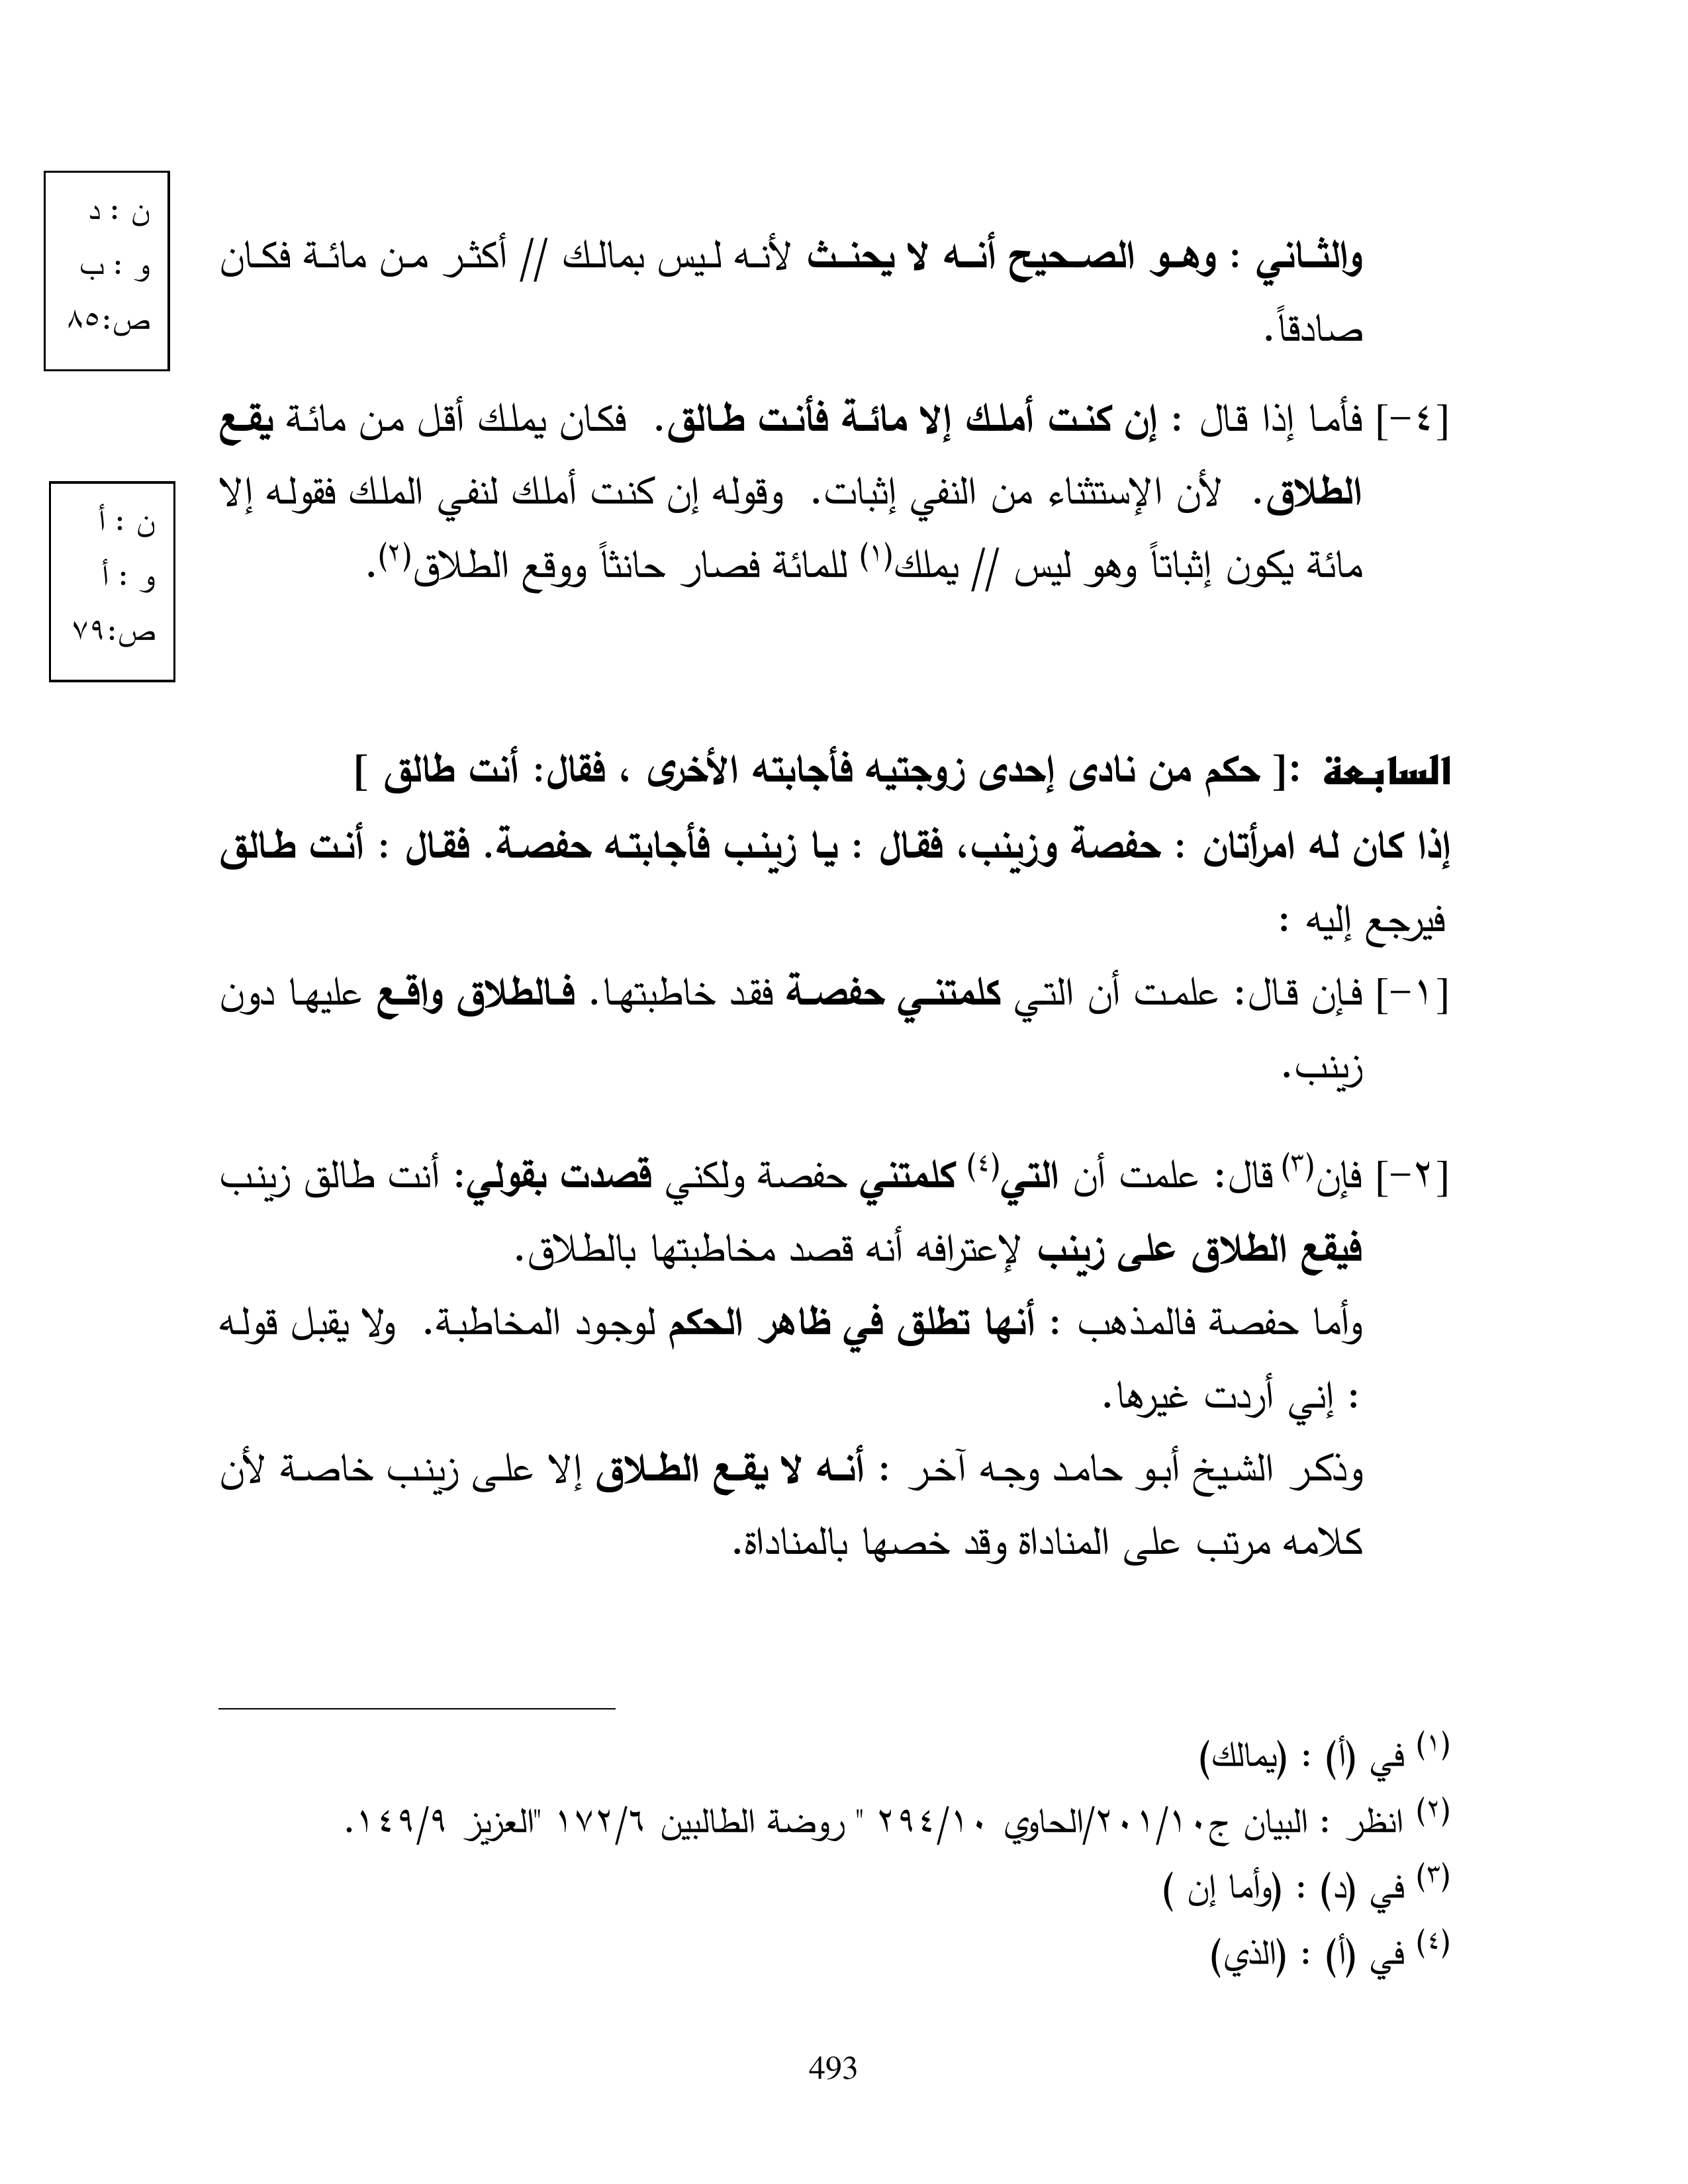 ن : د
و : ب
ص:٨٥
والثاني : وهو الصحيح أنه لا يحنث لأنه ليس بمالك // أكثر من مائة فكان
صادقاً.
[٤-] فأما إذا قال : إن كنت أملك إلا مائة فأنت طالق. فكان يملك أقل من مائة يقع
الطلاق. لأن الإستثناء من النفي إثبات. وقوله إن كنت أملك لنفي الملك فقوله إلا
مائة يكون إثباتاً وهو ليس // يملك(١) للمائة فصار حانثاً ووقع الطلاق(٢).
ن : أ
و : أ
ص:٧٩
السابعة :[ حكم من نادى إحدى زوجتيه فأجابته الأخرى ، فقال: أنت طالق ]
إذا كان له امرأتان : حفصة وزينب، فقال : يا زينب فأجابته حفصة. فقال : أنت طالق
فيرجع إليه :
[١-] فإن قال: علمت أن التي كلمتني حفصة فقد خاطبتها. فالطلاق واقع عليها دون
زينب.
[٢-] فإن(٣) قال: علمت أن التي(٤) كلمتني حفصة ولكني قصدت بقولي: أنت طالق زينب
فيقع الطلاق على زينب لإعترافه أنه قصد مخاطبتها بالطلاق.
وأما حفصة فالمذهب : أنها تطلق في ظاهر الحكم لوجود المخاطبة. ولا يقبل قوله
: إني أردت غيرها.
وذكر الشيخ أبو حامد وجه آخر : أنه لا يقع الطلاق إلا على زينب خاصة لأن
كلامه مرتب على المناداة وقد خصها بالمناداة.
(١) في (أ) : (يمالك)
(٢) انظر : البيان ج١٠/٢٠١/الحاوي ٢٩٤/١٠ " روضة الطالبين ١٧٢/٦ "العزيز ١٤٩/٩.
(٣) في (د) : (وأما إن )
(٤) في (أ) : (الذي)
493